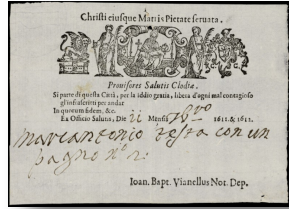 Christi eiusque Matris Pietate seruata.
Prouisores Salutis Clodiæ.
Si parte di questa Città, per la Iddio gratia, libera d'ogni mal contagioso
gl'infrascritti per andar
In quorum fidem, &c.
Ex Officio Salutis, Die ii Mensis 1611. & 1612.
Marcantonio Testa con un
bagno n.º 2.
Ioan. Bapt. Vianellus Not. Dep.